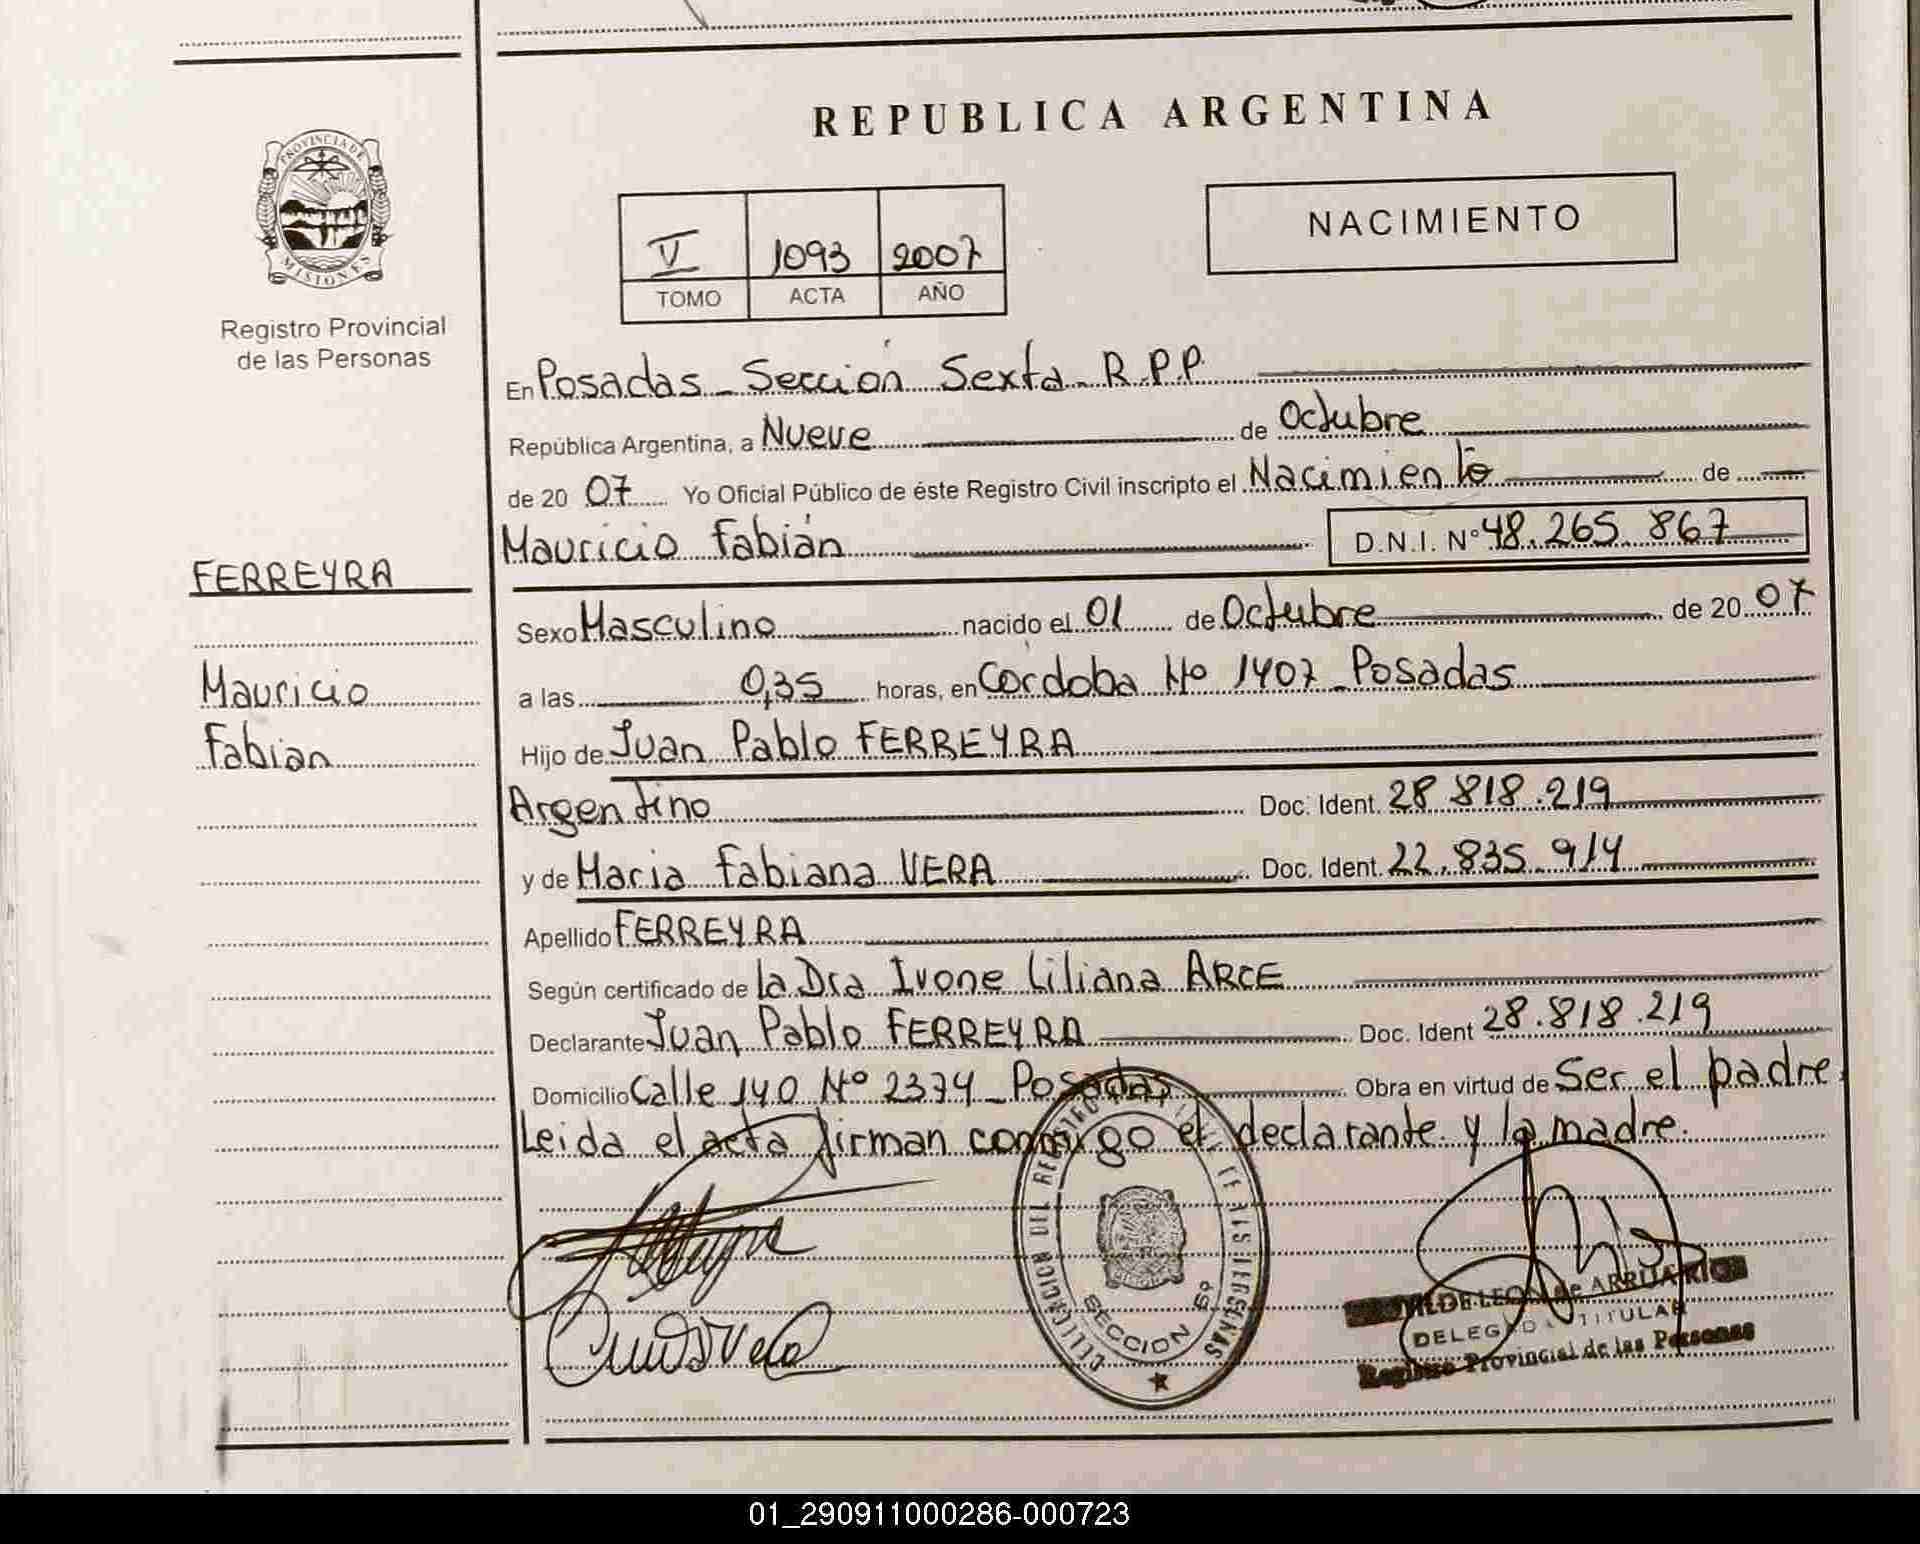 REPUBLICA ARGENTINA
PROVINCIA DE
MISIONES
Registro Provincial
de las Personas
V 1093 2007
TOMO ACTA AÑO
NACIMIENTO
En Posadas - Sección Sexta - R.P.P.
República Argentina, a Nueve de Octubre
de 20 07 Yo Oficial Público de éste Registro Civil inscripto el Nacimiento de
Mauricio Fabián D.N.I. N° 48.265.867
FERREYRA
Mauricio
Fabian
Sexo Masculino nacido el 01 de Octubre de 20 07
a las 0,35 horas, en Córdoba Nº 1407 - Posadas
Hijo de Juan Pablo FERREYRA
Argentino Doc. Ident. 28.818.219
y de Maria Fabiana VERA Doc. Ident. 22.835.914
Apellido FERREYRA
Según certificado de la Dra Ivone Liliana ARCE
Declarante Juan Pablo FERREYRA Doc. Ident 28.818.219
Domicilio Calle 140 Nº 2374 - Posadas Obra en virtud de Ser el padre.
Leida el acta firman conmigo el declarante y la madre.
SECCION 6º
DE LEON de ARRUA RIOS
DELEGADA TITULAR
Registro Provincial de las Personas
01_290911000286-000723